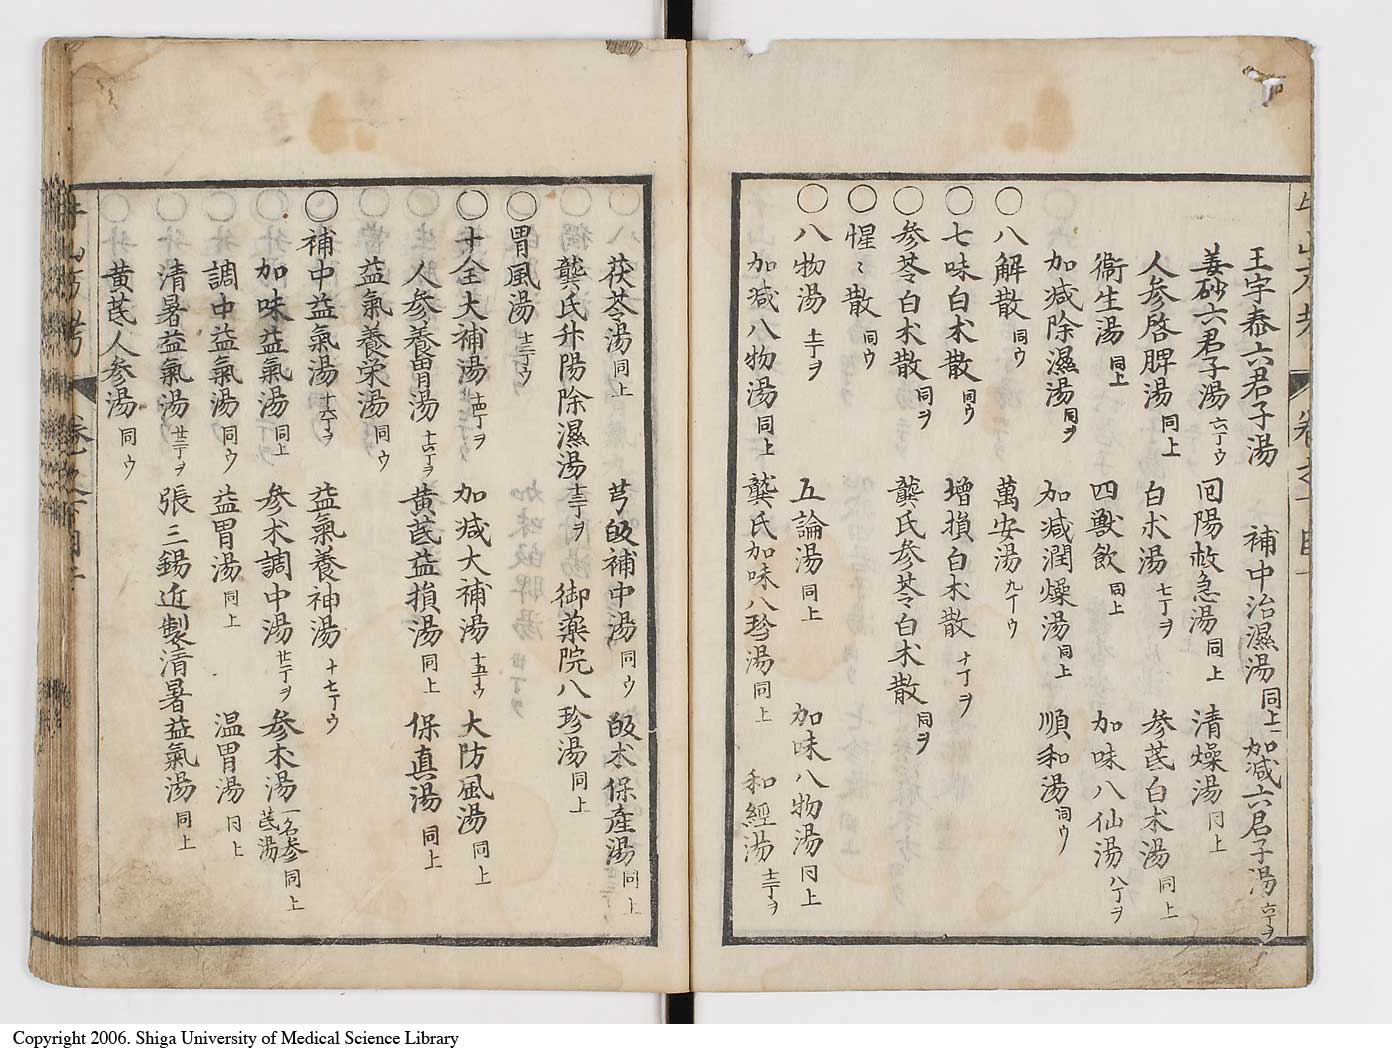 王字泰六君子湯 補中治濕湯同上 加減六君子湯六丁ヲ
姜砂六君子湯六丁ウ 囘陽救急湯同上 清燥湯同上
人参啓脾湯同上 白朮湯七丁ヲ 参芪白朮湯同上
衞生湯同上 四獸飲同上 加味八仙湯八丁ヲ
加減除濕湯同ヲ 加減潤燥湯同上 順和湯同ウ
○八解散同ウ 萬安湯九丁ウ
○七味白朮散同ウ 增損白朮散十丁ヲ
○参苓白朮散同ヲ 龔氏参苓白朮散同ヲ
○惺〻散同ウ
○八物湯十一丁ヲ 五論湯同上 加味八物湯同上
加减八物湯同上 龔氏加味八珍湯同上 和經湯十二丁ヲ
茯苓湯同上 芎皈補中湯同ウ 皈朮保產湯同上
龔氏升陽除濕湯十三丁ヲ 御藥院八珍湯同上
○胃風湯十三丁ウ
○十全大補湯十四丁ヲ 加减大補湯十五丁ウ 大防風湯同上
人参養胃湯十六丁ヲ 黄芪益損湯同上 保真湯同上
益氣養栄湯同ウ
○補中益氣湯十六丁ウ 益氣養神湯十七丁ウ
加味益氣湯同上 参朮調中湯廿一丁ヲ 参朮湯一名参芪湯同上
調中益氣湯同ウ 益胃湯同上 温胃湯同上
清暑益氣湯廿二丁ヲ 張三錫近製清暑益氣湯同上
黄芪人参湯同ウ
Copyright 2006. Shiga University of Medical Science Library